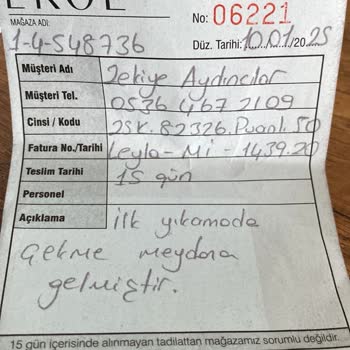 EROL
MAĞAZA ADI:
No: 06221
1-4-548736
Düz. Tarihi: 10.01./20.25
Müşteri Adı Zekiye Aydıncılar
Müşteri Tel. 0536 467 2109
Cinsi / Kodu 25K. 82326. Puanl. 50
Fatura No./Tarihi Leyla-Mi-1439.20
Teslim Tarihi 15 gün
Personel
Açıklama İlk yıkamada
çekme meydana
gelmiştir.
15 gün içerisinde alınmayan tadilattan mağazamız sorumlu değildir.